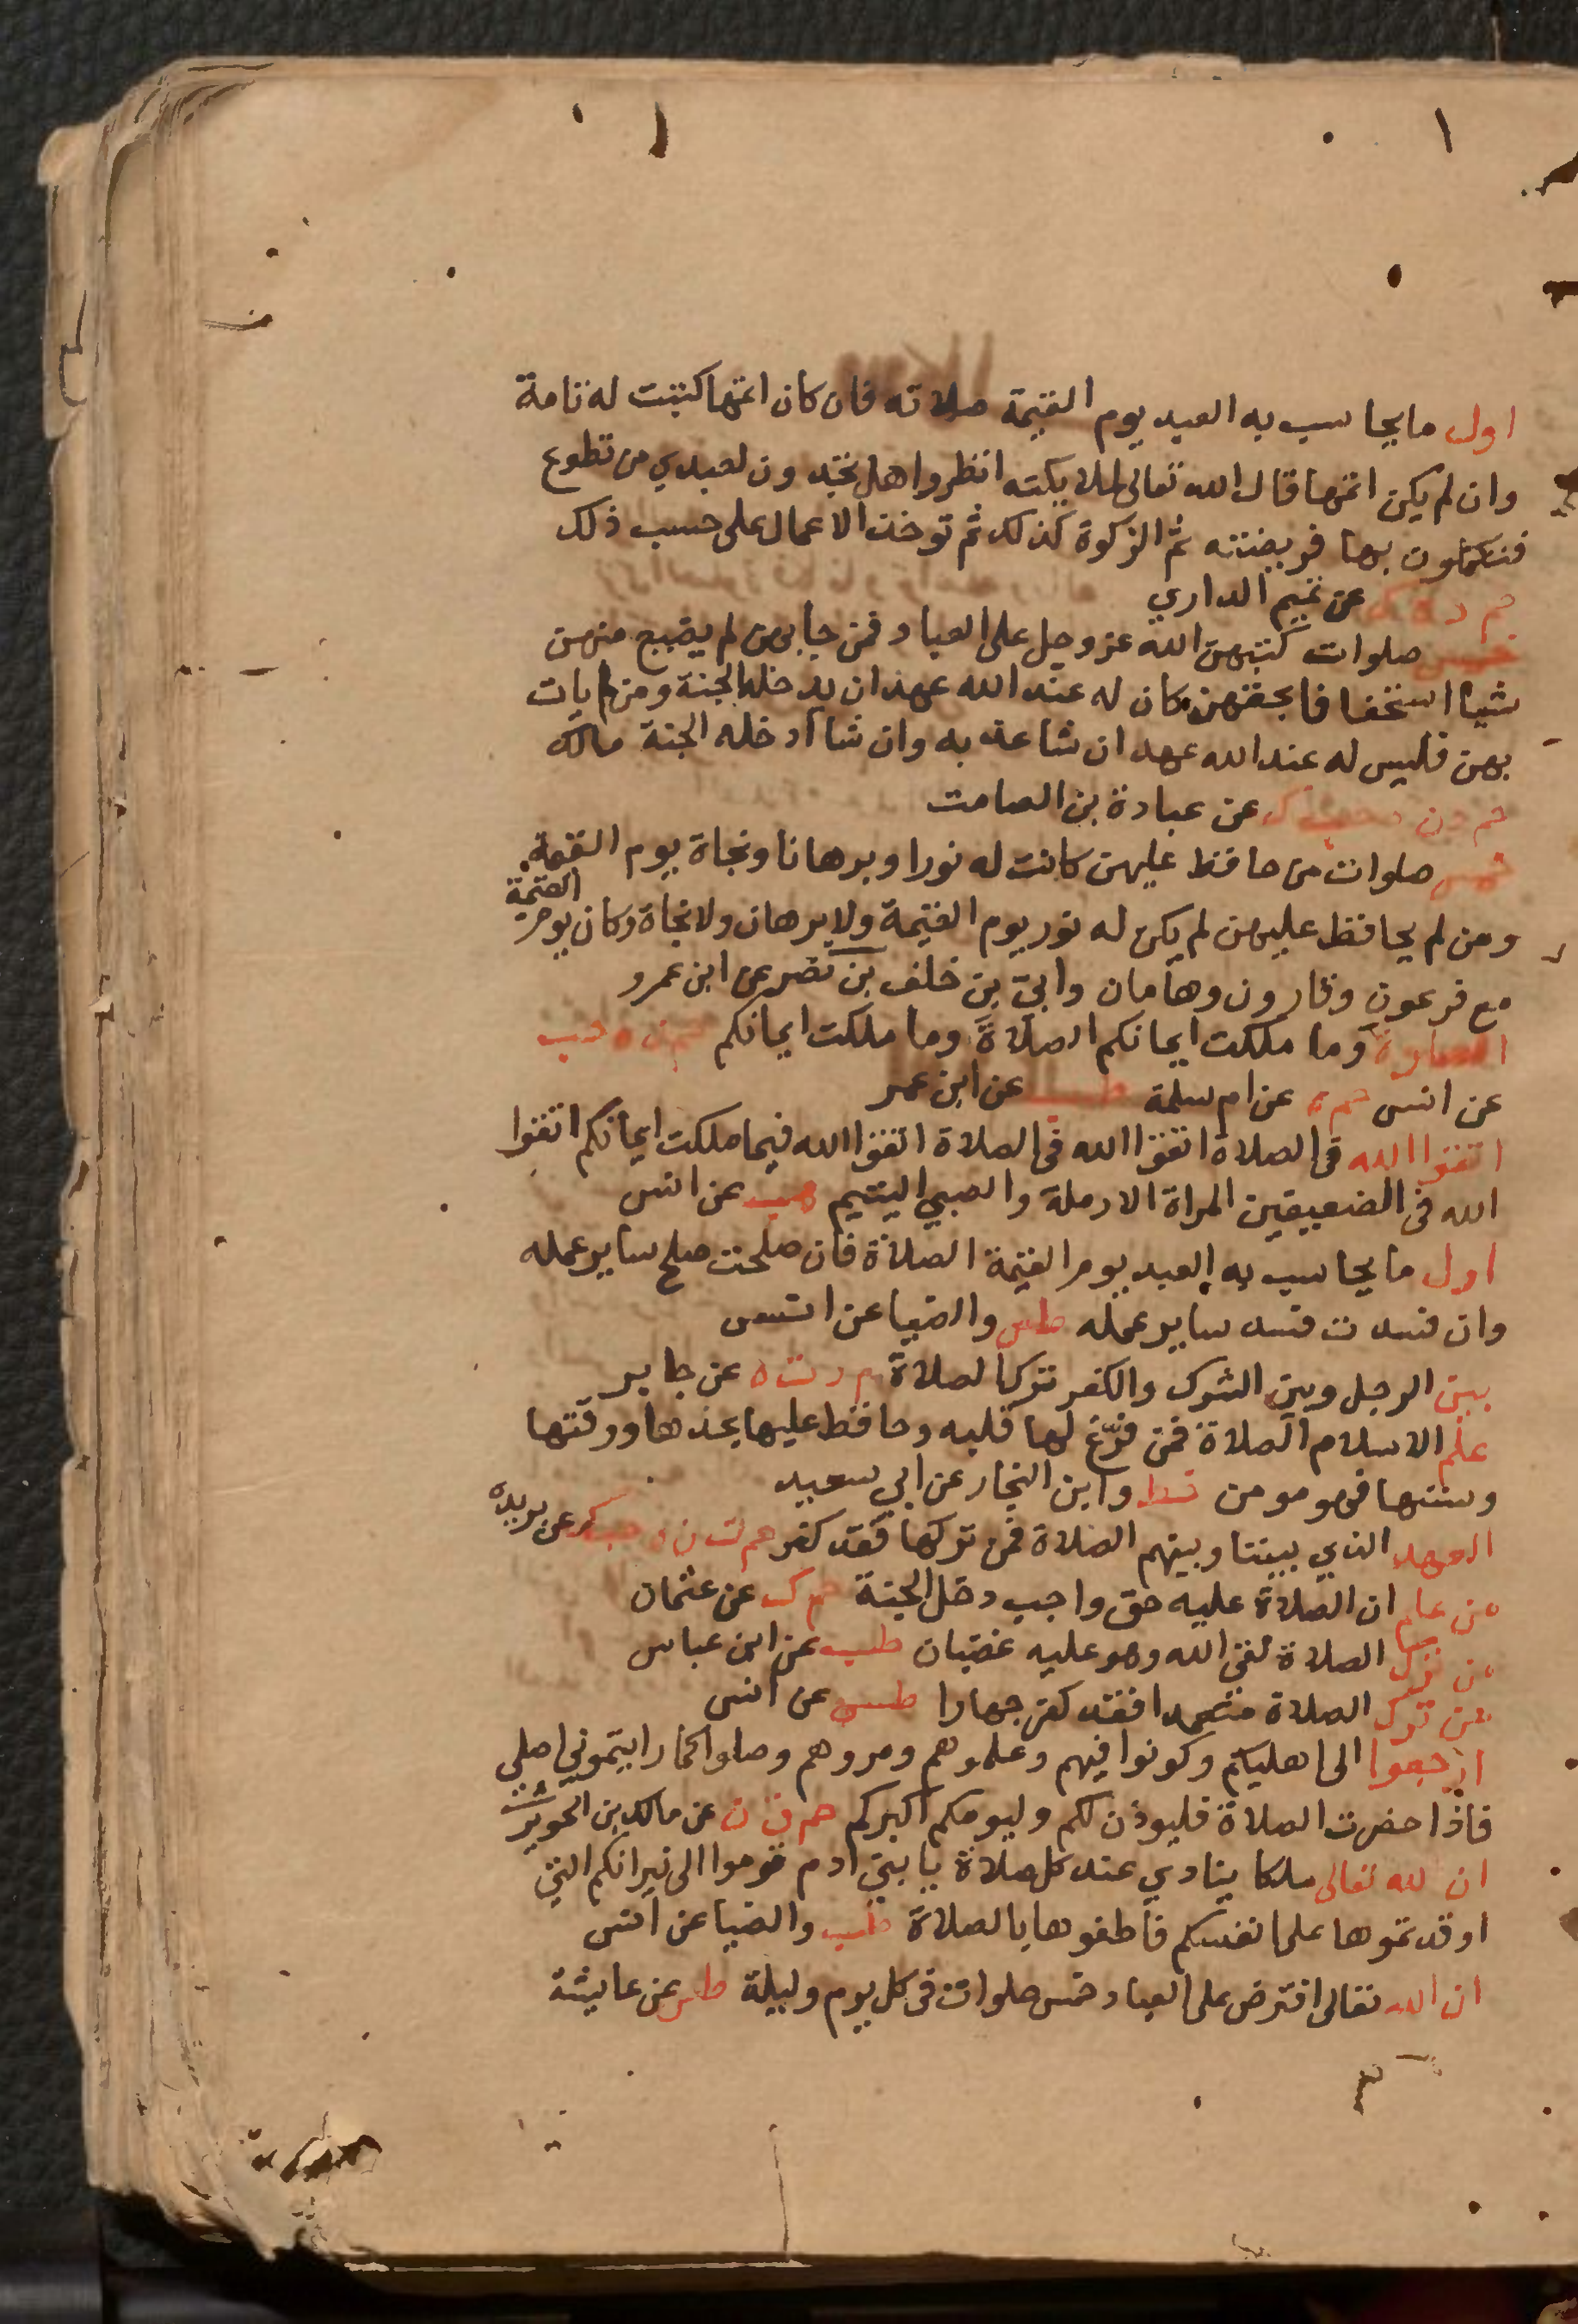 اول ما يحاسب به العبد يوم القيمة صلاته فان كان اتمها كتبت له تامة
وان لم يكن اتمها قال الله تعالى لملايكته انظروا هل تجدون لعبدي من تطوع
فتكملون بها فريضته ثم الزكوة كذلك ثم توخذ الاعمال على حسب ذلك
حم د ه ك عن تميم الداري
خمس صلوات كتبهن الله عز وجل على العباد فمن جا بهن لم يضيع منهن
شيا استخفافا بحقهن كان له عند الله عهد ان يدخله الجنة ومن لم يات
بهن فليس له عند الله عهد ان شا عذبه وان شا ادخله الجنة مالك
حم د ن ه حب ك عن عبادة بن الصامت
خمس صلوات من حافظ عليهن كانت له نورا وبرهانا ونجاة يوم القيمة
ومن لم يحافظ عليهن لم يكن له نور يوم القيمة ولا برهان ولا نجاة وكان يوم القيمة
مع فرعون وقارون وهامان وابي بن خلف بن نصر عن ابن عمرو
الصلوة وما ملكت ايمانكم الصلاة وما ملكت ايمانكم حم ن ه حب
عن انس حم ه عن ام سلمة طب عن ابن عمر
اتقوا الله في الصلاة اتقوا الله في الصلاة اتقوا الله فيما ملكت ايمانكم اتقوا
الله في الضعيفين المراة الارملة والصبي اليتيم هب عن انس
اول ما يحاسب به العبد يوم القيمة الصلاة فان صلحت صلح ساير عمله
وان فسدت فسد ساير عمله طس والضيا عن انس
بين الرجل وبين الشرك والكفر ترك الصلاة م د ت ه عن جابر
علم الاسلام الصلاة فمن فرّغ لها قلبه وحافظ عليها بحدها ووقتها
وسننها فهو مومن خط وابن النجار عن ابي سعيد
العهد الذي بيننا وبينهم الصلاة فمن تركها فقد كفر حم ت ن ه حب ك عن بريدة
من علم ان الصلاة عليه حق واجب دخل الجنة حم ك عن عثمان
من ترك الصلاة لقي الله وهو عليه غضبان طب عن ابن عباس
من ترك الصلاة متعمدا فقد كفر جهارا طس عن انس
ارجعوا الى اهليكم وكونوا فيهم وعلموهم ومروهم وصلوا كما رايتموني اصلي
فاذا حضرت الصلاة فليوذن لكم وليومكم اكبركم حم ق ن عن مالك بن الحويرث
ان لله تعالى ملكا ينادي عند كل صلاة يا بني ادم قوموا الى نيرانكم التي
اوقدتموها على انفسكم فاطفوها بالصلاة طب والضيا عن انس
ان الله تعالى افترض على العباد خمس صلوات في كل يوم وليلة طس عن عايشة